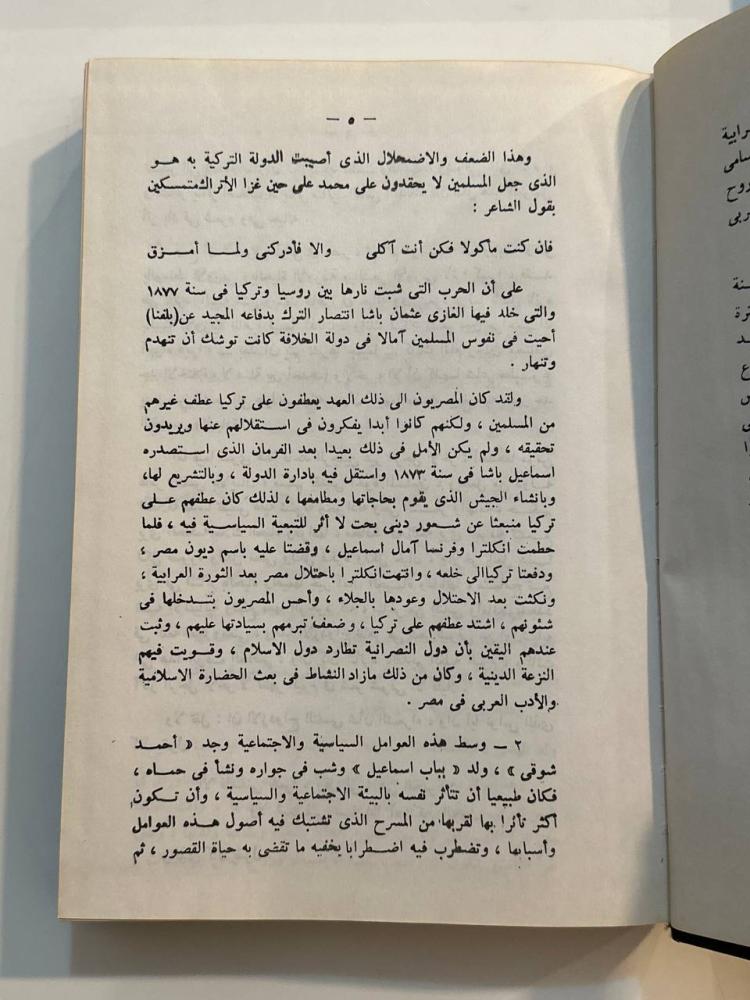 — ٥ —
وهذا الضعف والاضمحلال الذى أصيبت الدولة التركية به هـو
الذى جعل المسلمين لا يحقدون على محمد على حين غزا الأتراك متمسكين
بقول الشاعر :
فان كنت مأكولا فكن أنت آكلى والا فأدركنى ولمـا أمـزق
على أن الحرب التى شبت نارها بين روسيا وتركيا فى سنة ١٨٧٧
والتى خلد فيها الغازى عثمان باشا انتصار الترك بدفاعه المجيد عن (بلفنا)
أحيت فى نفوس المسلمين آمالا فى دولة الخلافة كانت توشك أن تنهدم
وتنهار .
ولقد كان المصريون الى ذلك العهد يعطفون على تركيا عطف غيرهم
من المسلمين ، ولكنهم كانوا أبدا يفكرون فى استقلالهم عنها ويريدون
تحقيقه ، ولم يكن الأمل فى ذلك بعيدا بعد الفرمان الذى استصدره
اسماعيل باشا فى سنة ١٨٧٣ واستقل فيه بادارة الدولة ، وبالتشريع لها،
وبانشاء الجيش الذى يقوم بحاجاتها ومطامعها ، لذلك كان عطفهم عـلى
تركيا منبعثا عن شعور دينى بحت لا أثر للتبعية السياسية فيه ، فلما
حطمت انكلترا وفرنسا آمال اسماعيل ، وقضتا عليه باسم ديون مصر ،
ودفعتا تركيا الى خلعه ، وانتهت انكلترا باحتلال مصر بعد الثورة العرابية ،
ونكثت بعد الاحتلال وعودها بالجلاء ، وأحس المصريون بتدخلها فى
شئونهم ، اشتد عطفهم على تركيا ، وضعف تبرمهم بسيادتها عليهم ، وثبت
عندهم اليقين بأن دول النصرانية تطارد دول الاسلام ، وقويت فيهم
النزعة الدينية ، وكان من ذلك مازاد النشاط فى بعث الحضارة الاسلامية
والأدب العربى فى مصر .
٢ — وسط هذه العوامل السياسية والاجتماعية وجد « أحمد
شوقى » ، ولد « بباب اسماعيل » وشب فى جواره ونشأ فى حماه ،
فكان طبيعيا أن تتأثر نفسه بالبيئة الاجتماعية والسياسية ، وأن تكون
أكثر تأثرا بها لقربها من المسرح الذى تشتبك فيه أصول هـذه العوامل
وأسبابها ، وتضطرب فيه اضطرابا يخفيه ما تقضى به حياة القصور ، ثم